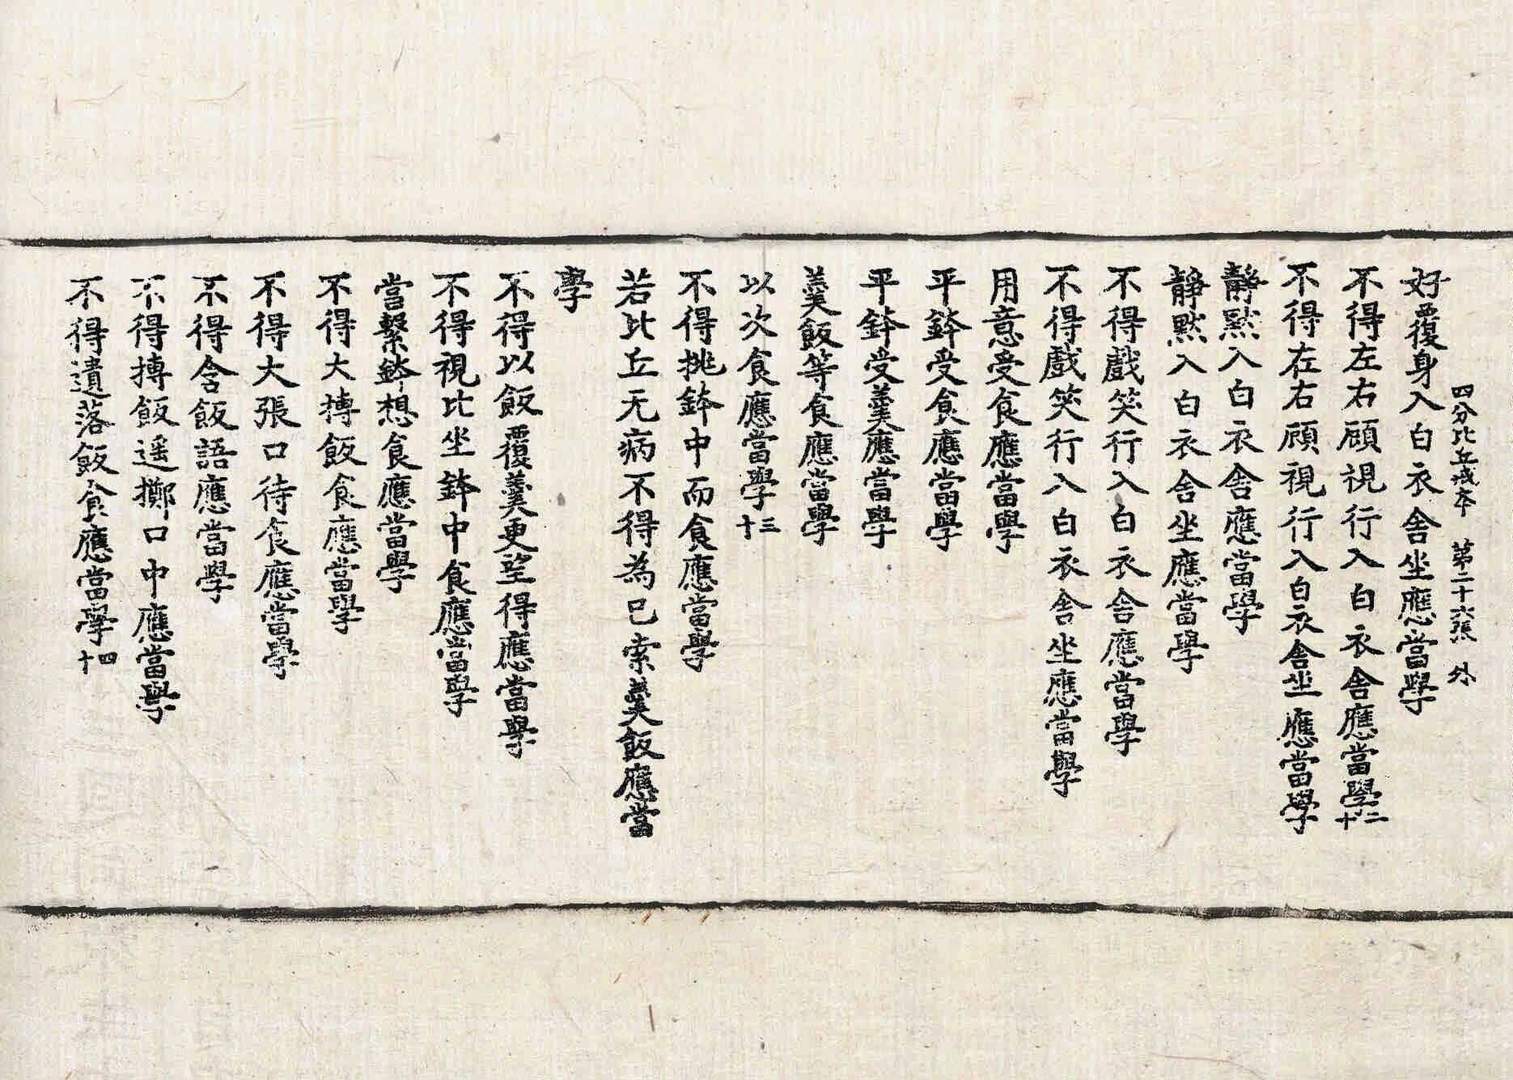 四分比丘戒本　第二十六張　外
好覆身入白衣舍坐應當學
不得左右顧視行入白衣舍應當學二十
不得左右顧視行入白衣舍坐應當學
靜默入白衣舍應當學
靜默入白衣舍坐應當學
不得戲笑行入白衣舍應當學
不得戲笑行入白衣舍坐應當學
用意受食應當學
平鉢受食應當學
平鉢受羹應當學
羹飯等食應當學
以次食應當學三十
不得挑鉢中而食應當學
若比丘无病不得為已索羹飯應當
學
不得以飯覆羹更望得應當學
不得視比坐鉢中食應當學
當繫鉢想食應當學
不得大摶飯食應當學
不得大張口待食應當學
不得含飯語應當學
不得摶飯遥擲口中應當學
不得遺落飯食應當學四十